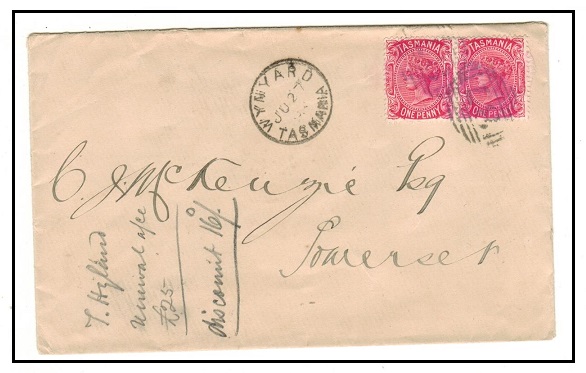 WYNYARD
JU 27
TASMANIA
TASMANIA
ONE PENNY
TASMANIA
ONE PENNY
C. J. McKenzie Esq
Somerset
T. Hyland
Renewal
£25
discount 16/